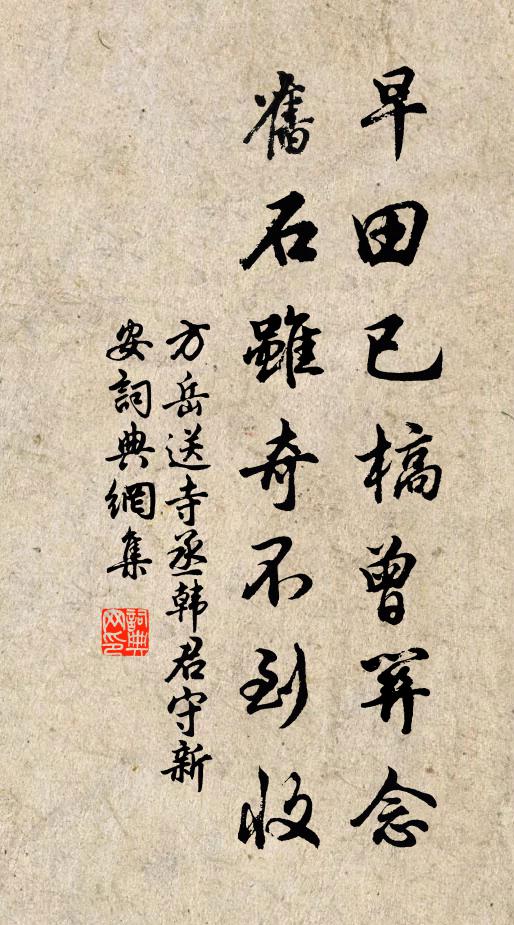 早田已槁曾關念
舊石雖奇不到收
方岳送寺丞韓君守新
安詞典網集
詞典
网印